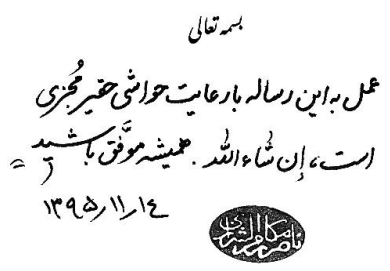 بسمه تعالی
عمل به این رساله با رعایت حواشی حقیر مُجزی
است، إن شاء الله. همیشه موفّق باشید
۱۳۹۵/۱۱/۱۴
ناصر مکارم الشیرازی